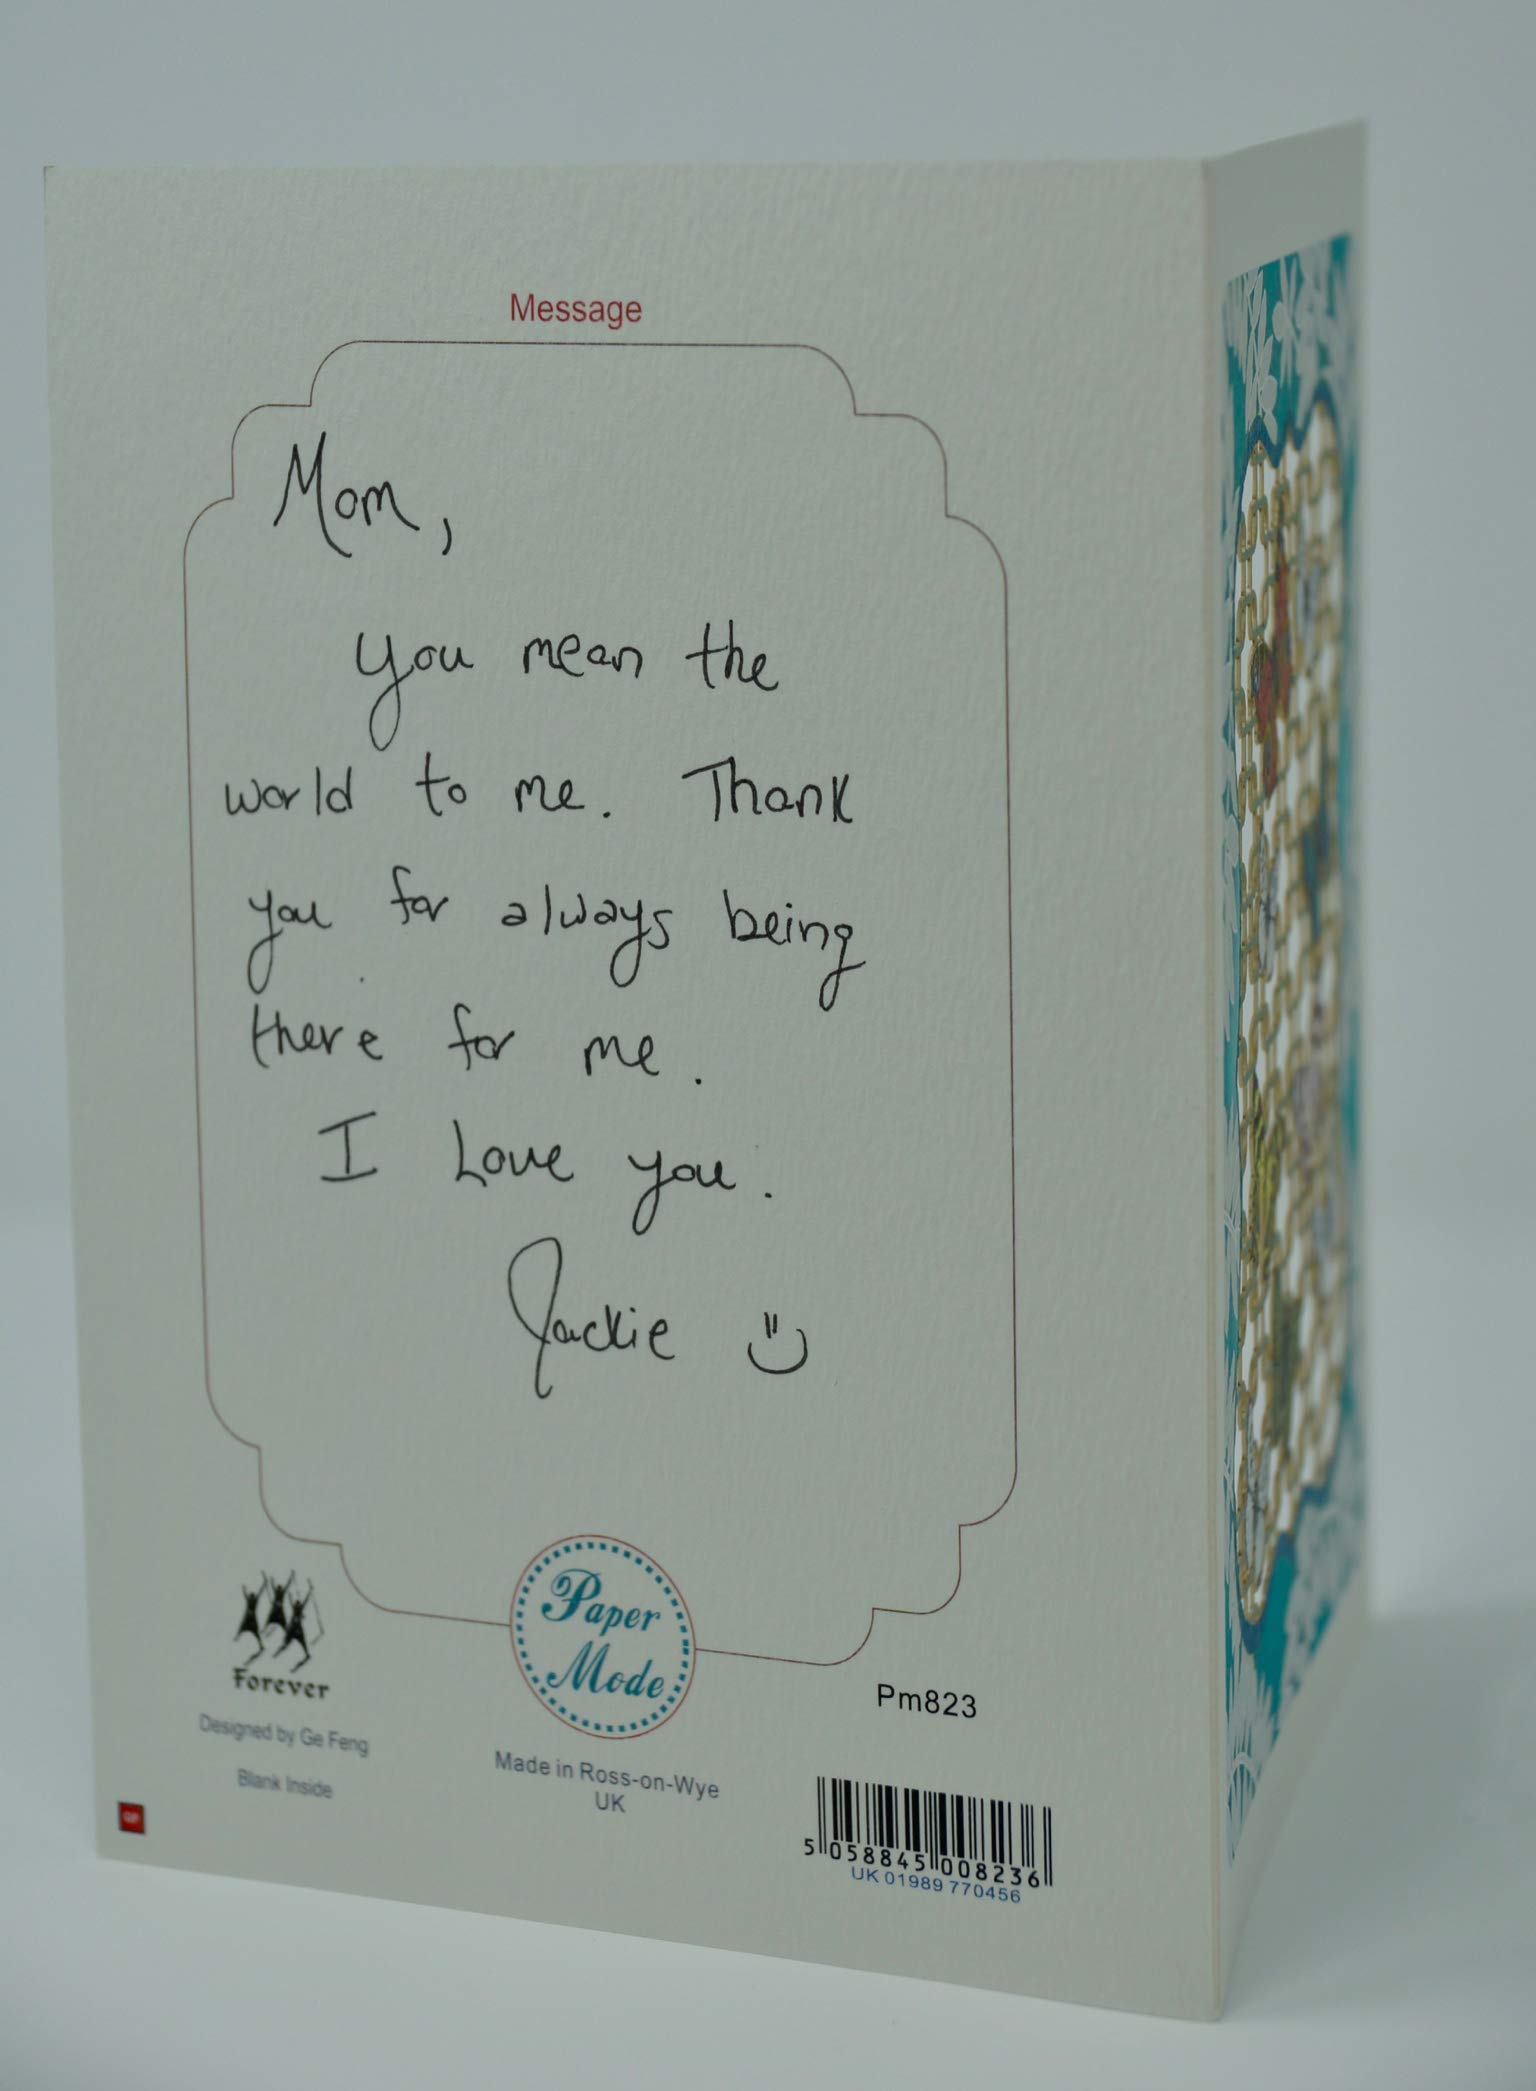 Message
Mom,
you mean the
world to me. Thank
you for always being
there for me.
I Love you.
Jackie
Paper
Mode
Forever
Designed by Ge Feng
Blank Inside
Made in Ross-on-Wye
UK
Pm823
5 058845 008236
UK 01989 770456